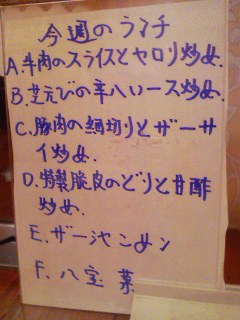 今週のランチ
A.牛肉のスライスとセロリ炒め.
B.芝えびの辛いソース炒め.
C.豚肉の細切りとザーサ
イ炒め.
D.特製脆皮のどりと甘酢
炒め.
E.ザー沱こめン
F.八宝菜